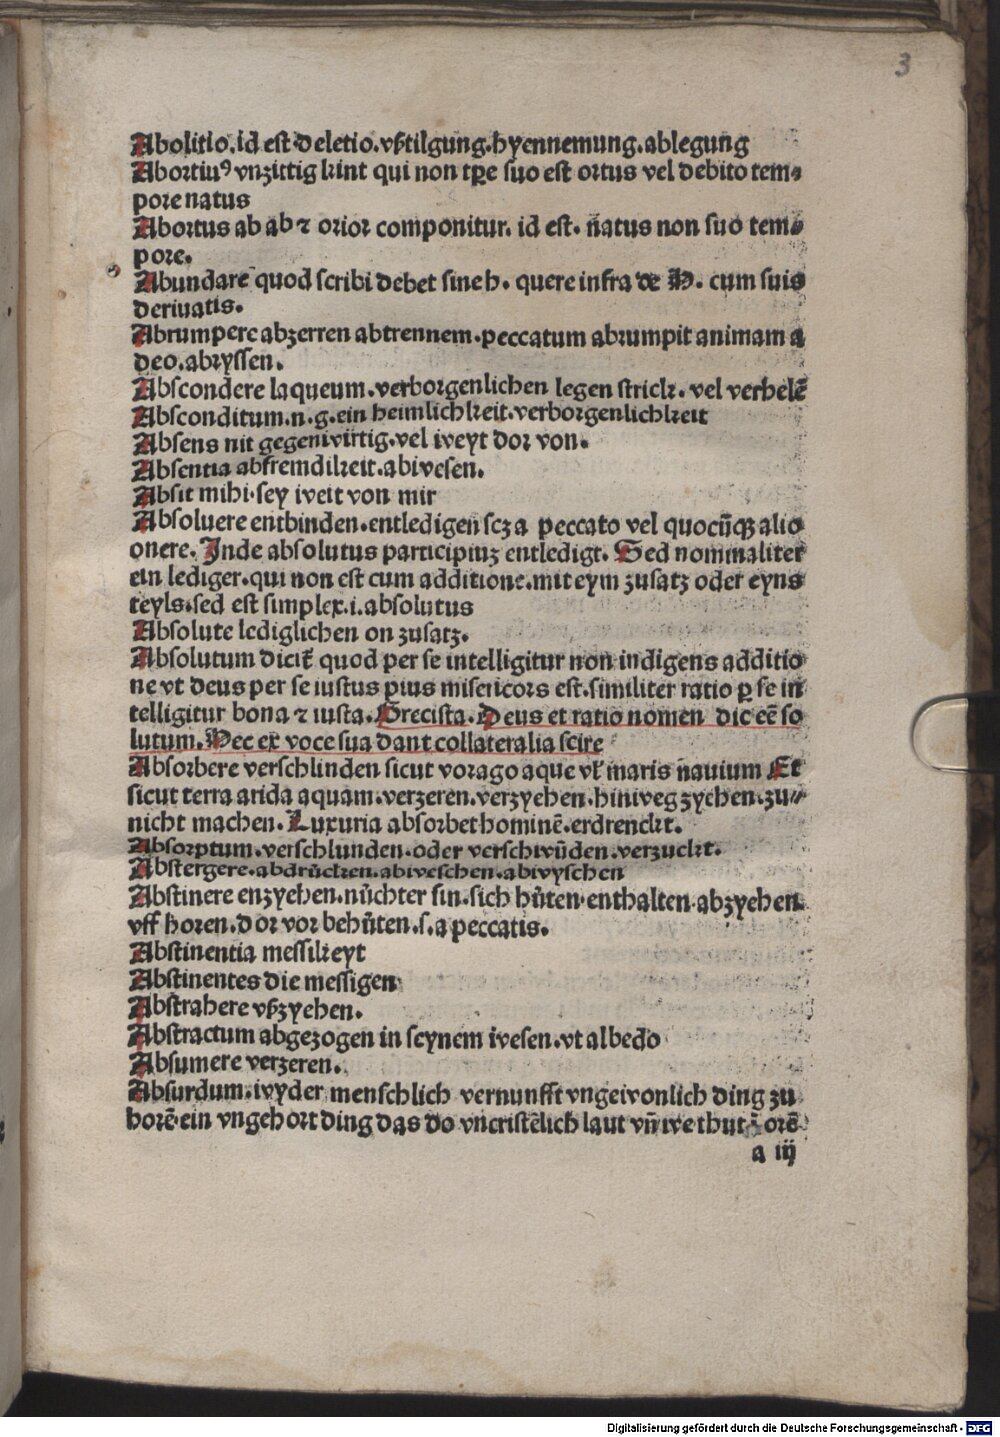 3
Abolitio. id est deletio. vßtilgung. hyennemung. ablegung
Abortiuꝰ vnzittig kint qui non tp̄e suo est ortus vel debito tem⸗
pore natus
Abortus ab ab ⁊ orior componitur. id est. natus non suo tem⸗
pore.
Abundare quod scribi debet sine h. quere infra de H. cum suis
deriuatis.
Abrumpere abzerren abtrennem. peccatum abrumpit animam a
deo. abryssen.
Abscondere laqueum. verborgenlichen legen strick. vel verhelē
Absconditum. n. g. ein heimlichkeit. verborgenlichkeit
Absens nit gegenwirtig. vel weyt dor von.
Absentia abfremdikeit. abwesen.
Absit mihi. sey weit von mir
Absoluere entbinden. entledigen scz a peccato vel quocūqꝫ alio
onere. Inde absolutus participiuꝫ entledigt. Sed nominaliter
ein lediger. qui non est cum additione. mit eym zusatz oder eyns
teyls. sed est simplex. i. absolutus
Absolute lediglichen on zusatz.
Absolutum dicit̄ quod per se intelligitur non indigens additio
ne vt deus per se iustus pius misericors est. similiter ratio ꝑ se in
telligitur bona ⁊ iusta. Grecista. Deus et ratio nomen dic eē so
lutum. Hec ex voce sua dant collateralia scire
Absorbere verschlinden sicut vorago aque vl̄ maris nauium Et
sicut terra arida aquam. verzeren. verzyehen. hinweg zyehen. zu⸗
nicht machen. Luxuria absorbet hominē. erdrenckt.
Absorptum. verschlunden. oder verschwūden. verzuckt.
Abstergere. abdrůcken. abweschen. abwyschen
Abstinere enzyehen. nůchter sin. sich hůten. enthalten. abzyehen.
vff horen. dor vor behůten. s. a peccatis.
Abstinentia messikeyt
Abstinentes die messigen
Abstrahere vßzyehen.
Abstractum abgezogen in seynem wesen. vt albedo
Absumere verzeren.
Absurdum. wyder menschlich vernunfft vngewonlich ding zu
horē. ein vngehort ding das do vncristēlich laut vn̄ we thut orē
a iij
Digitalisierung gefördert durch die Deutsche Forschungsgemeinschaft - DFG